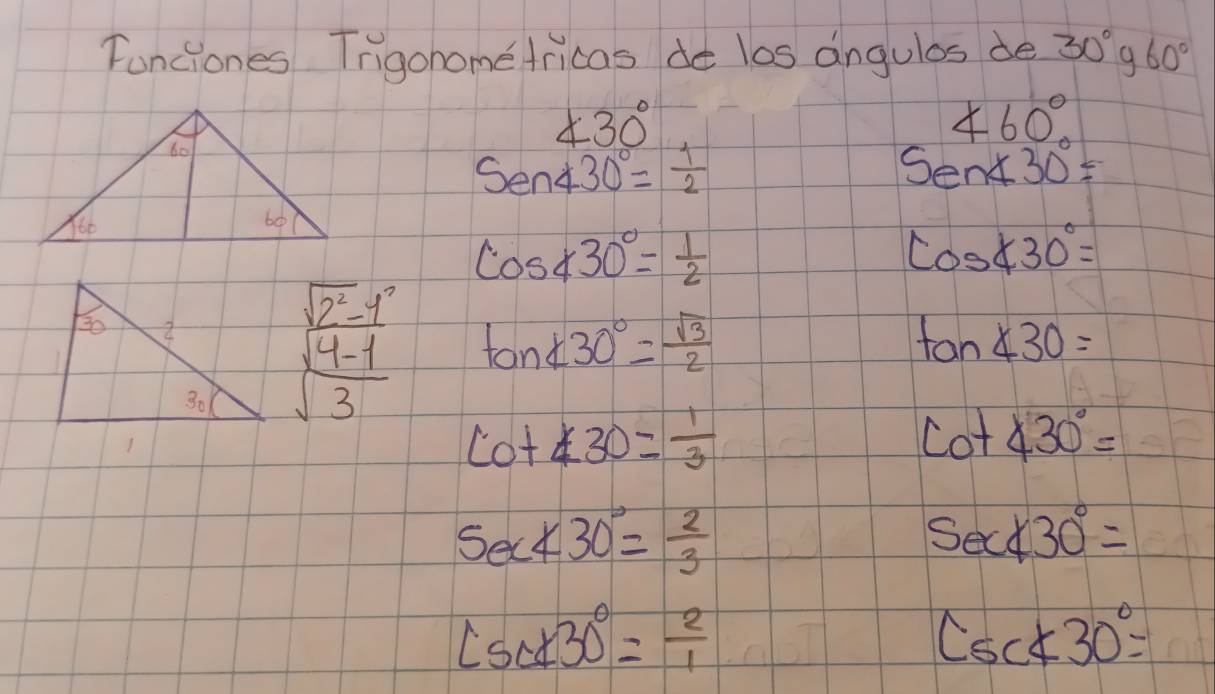 Funciones Trigonométricas de los ángulos de 30° y 60°
∢30° ∢60°
60
Sen∢30° = 1/2 Sen∢30° =
60 60
Cos∢30° = 1/2 Cos∢30° =
√2² - 1²
30 2
√4 - 1
tan∢30° = √3/2 tan∢30 =
30
√3
1
Cot∢30 = 1/3 Cot∢30° =
Sec∢30° = 2/3 Sec∢30° =
Csc∢30° = 2/1 Csc∢30° =